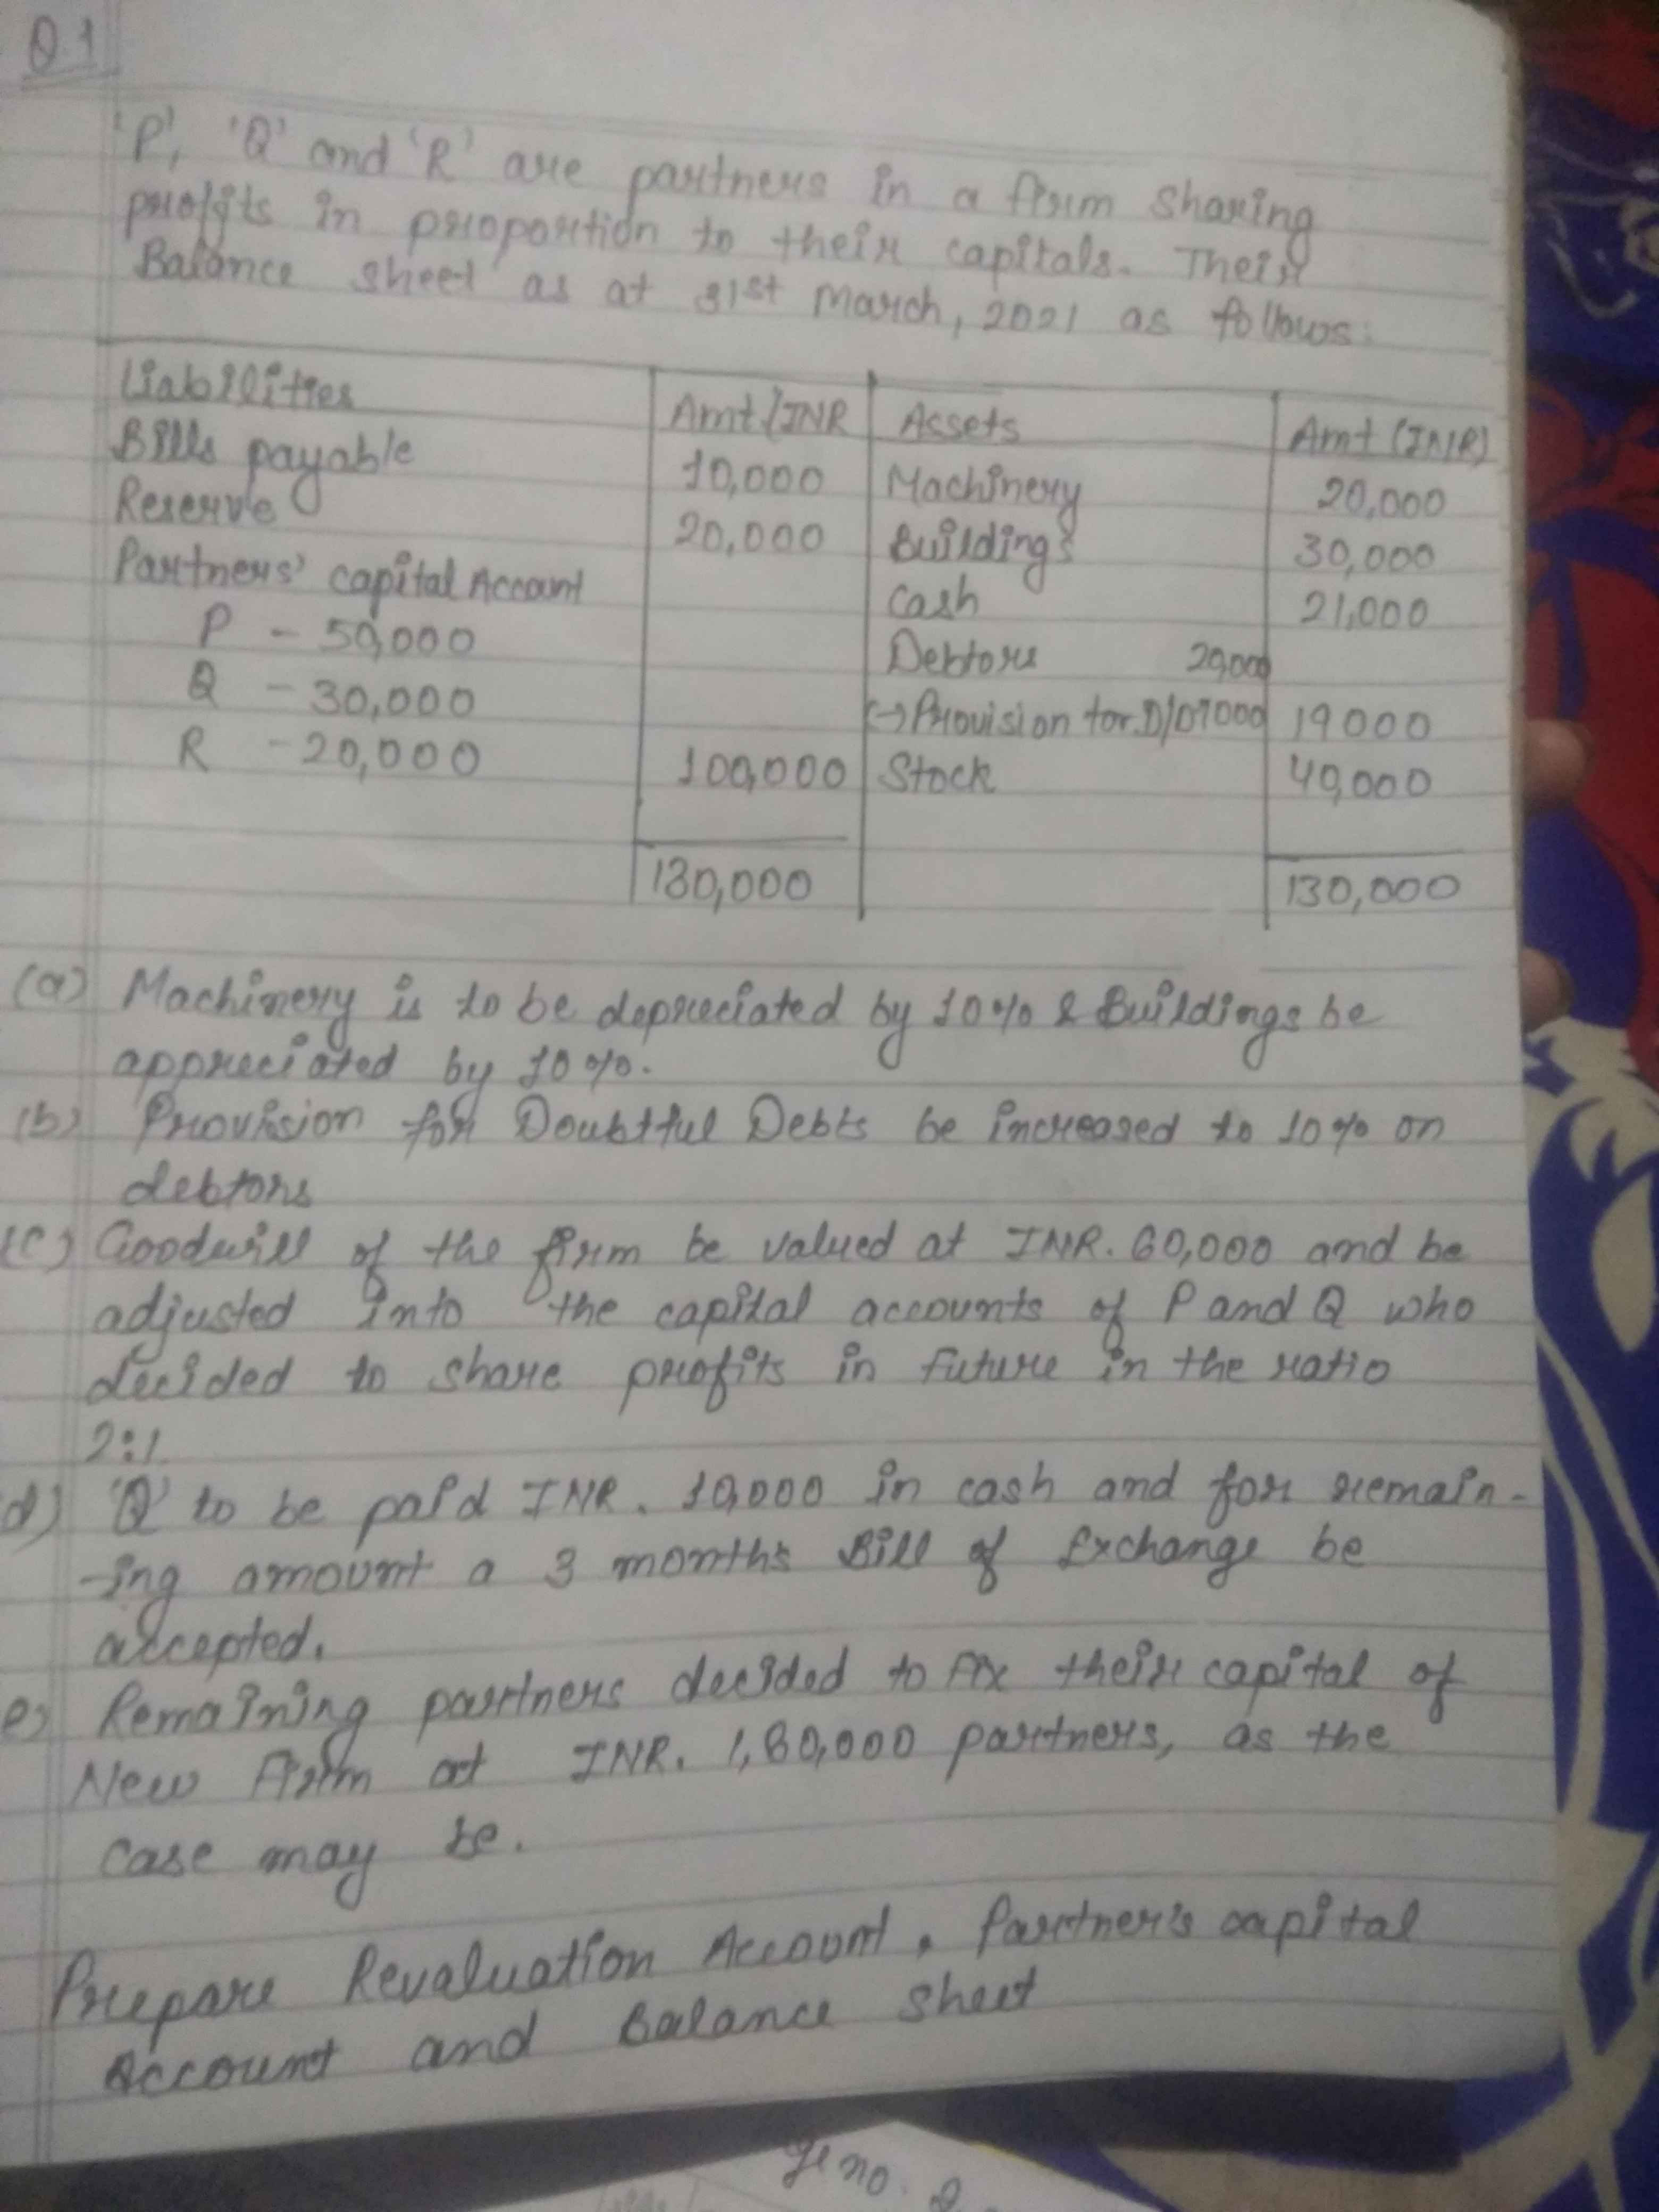 Q.1
'P', 'Q' and 'R' are partners in a firm sharing
profits in proportion to their capitals. Their
Balance sheet as at 31st March, 2021 as follows:
Liabilities Amt (INR Assets Amt (INR)
Bills payable 10,000 Machinery 20,000
Reserve 20,000 Buildings 30,000
Partners' capital Account Cash 21,000
P - 50,000 Debtors 20,000
Q - 30,000 (-) Provision for D/D 1000 19000
R - 20,000 100,000 Stock 40,000
130,000 130,000
(a) Machinery is to be depreciated by 10% & Buildings be
appreciated by 10%.
(b) Provision for Doubtful Debts be increased to 10% on
debtors
(c) Goodwill of the firm be valued at INR. 60,000 and be
adjusted into the capital accounts of P and Q who
decided to share profits in future in the ratio
2:1.
d) 'Q' to be paid INR. 10,000 in cash and for remain-
-ing amount a 3 months Bill of Exchange be
accepted.
e) Remaining partners decided to fix their capital of
New Firm at INR. 1,80,000 partners, as the
case may be.
Prepare Revaluation Account, Partner's capital
Account and Balance sheet
ge no. 2